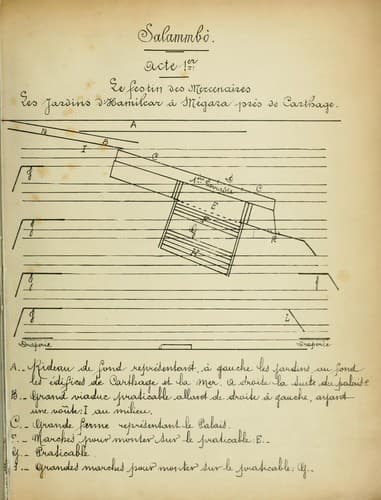 Salammbô.
Acte 1er
Le festin des Mercenaires
Les Jardins d'Hamilcar à Mégara près de Carthage.
A
B
I
B
C
C
E
F
G
H
K
L
Draperie
Draperie
A. Rideau de fond représentant, à gauche les jardins au fond
les édifices de Carthage et la Mer. A droite la suite du palais.
B. Grand viaduc praticable allant de droite à gauche, ayant
une voûte: I au milieu.
C. Grande ferme représentant le Palais.
Marches pour monter sur le praticable: E.
G. Praticable.
Grandes marches pour monter sur le praticable: G.